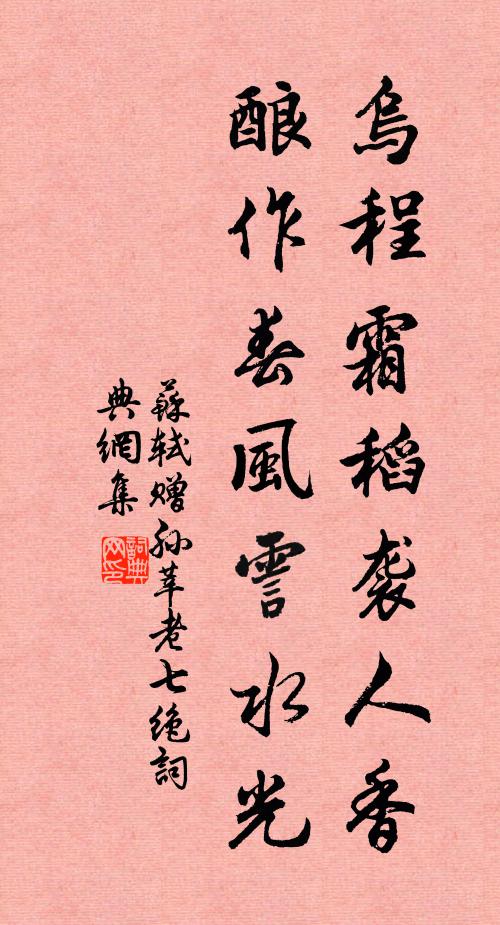 烏程霜稻袭人香
酿作春風霅水光
蘇轼赠孙莘老七绝詞
典網集
詞典
网印